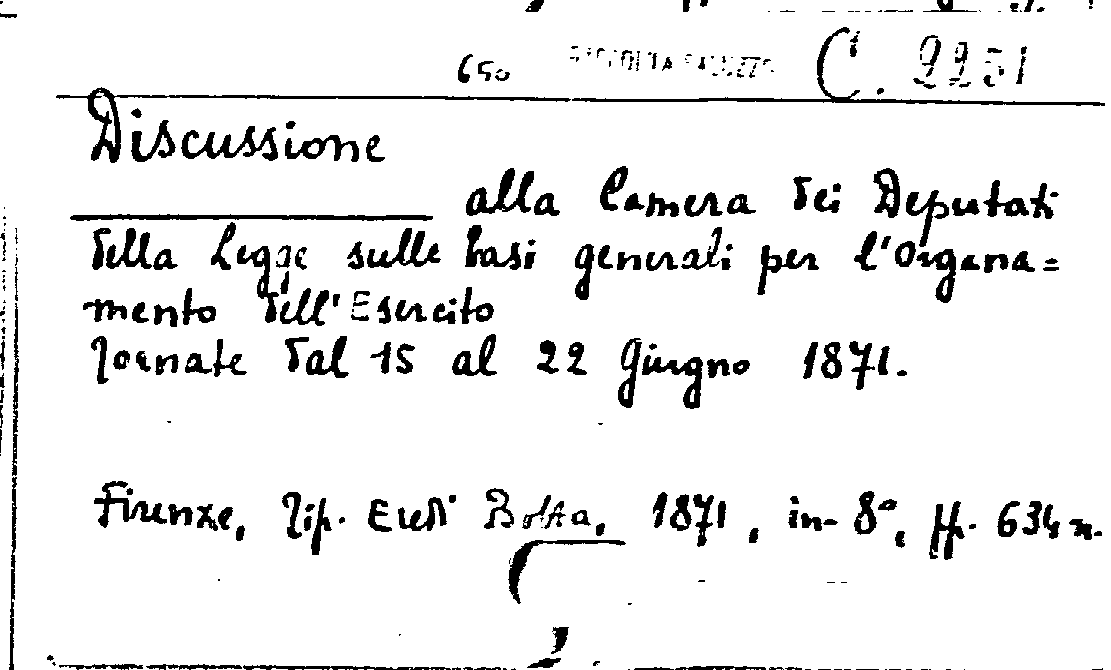 650 RACCOLTA SALUZZO C. 2251
Discussione
alla Camera dei Deputati
della Legge sulle basi generali per l'Organa=
mento dell'Esercito
Tornate dal 15 al 22 Giugno 1871.
Firenze, Tip. Eredi Botta, 1871, in-8°, pp. 634 n.